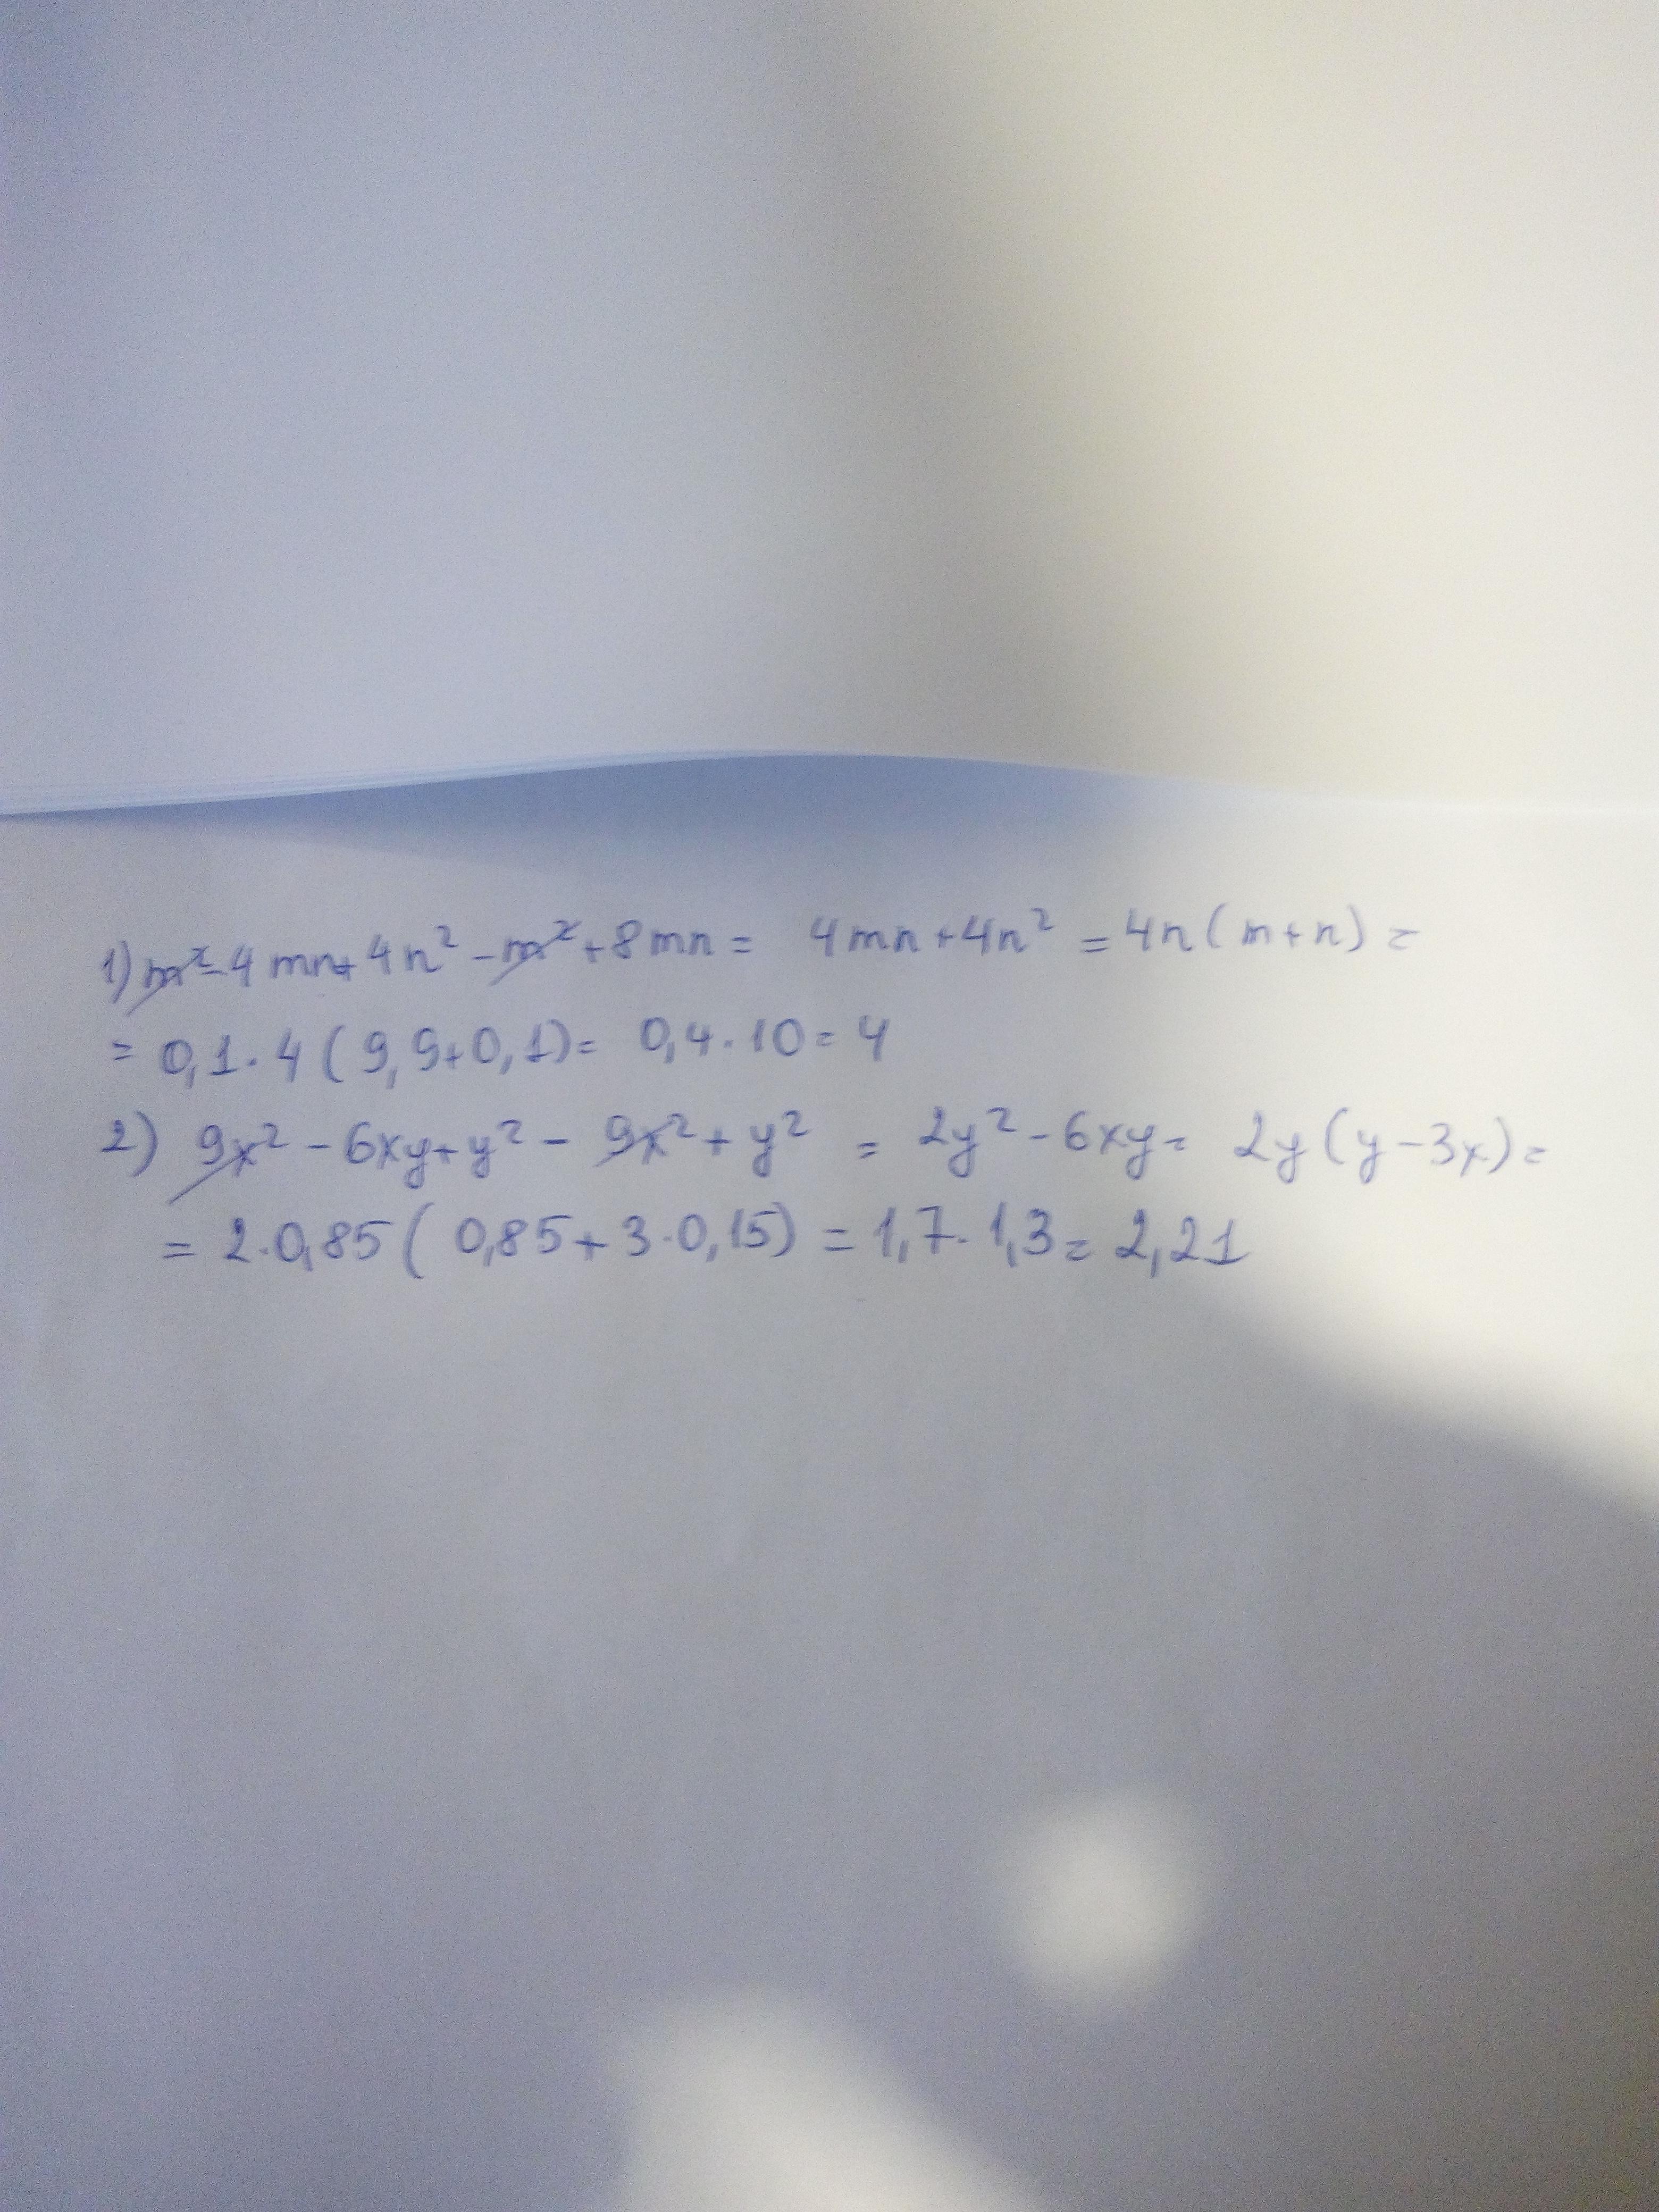 1) m² - 4mn + 4n² - m² + 8mn = 4mn + 4n² = 4n(m+n) =
= 0,1 · 4 (9,9 + 0,1) = 0,4 · 10 = 4
2) 9x² - 6xy + y² - 9x² + y² = 2y² - 6xy = 2y(y - 3x) =
= 2 · 0,85 (0,85 + 3 · 0,15) = 1,7 · 1,3 = 2,21